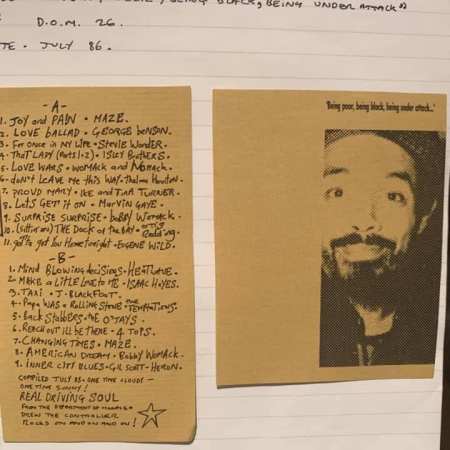 BEING BLACK, BEING UNDER ATTACK"
D.O.M. 26.
TE - JULY 86.
- A -
1. JOY and PAIN • MAZE.
2. LOVE BALLAD • GEORGE BENSON.
3. For once in my Life • Stevie Wonder.
4. THAT LADY (Parts 1+2) • ISLEY BROTHERS.
5. LOVE WARS • WOMACK and WOMACK.
6. don't LEAVE me this WAY • Thelma Houston.
7. PROUD MARY • IKE and TINA TURNER.
8. LETS GET IT ON • MARVIN GAYE.
9. SURPRISE SURPRISE • BOBBY WOMACK.
10. (sittin' on) THE DOCK OF THE BAY • OTIS Redding.
11. gotta get you Home Tonight • EUGENE WILD.
- B -
1. MIND BLOWING decisions • HEATWAVE.
2. MAKE a LITTLE LOVE to ME • ISAAC HAYES.
3. TAXI • J. BLACKFOOT.
4. Papa WAS a ROLLING STONE • THE TEMPTATIONS.
5. Back STABBERS • THE O'JAYS.
6. REACH OUT I'LL BE THERE • 4 TOPS.
7. CHANGING TIMES • MAZE.
8. AMERICAN DREAM • Bobby WOMACK.
9. INNER CITY BLUES • GIL SCOTT-HERON.
COMPILED JULY 85 • ONE TIME CLOUDY -
ONE TIME SUNNY!
REAL DRIVING SOUL
FROM THE DEPARTMENT OF
DREW THE CONTROLLER
ROCKS ON AND ON AND ON!
'Being poor, being black, being under attack...'